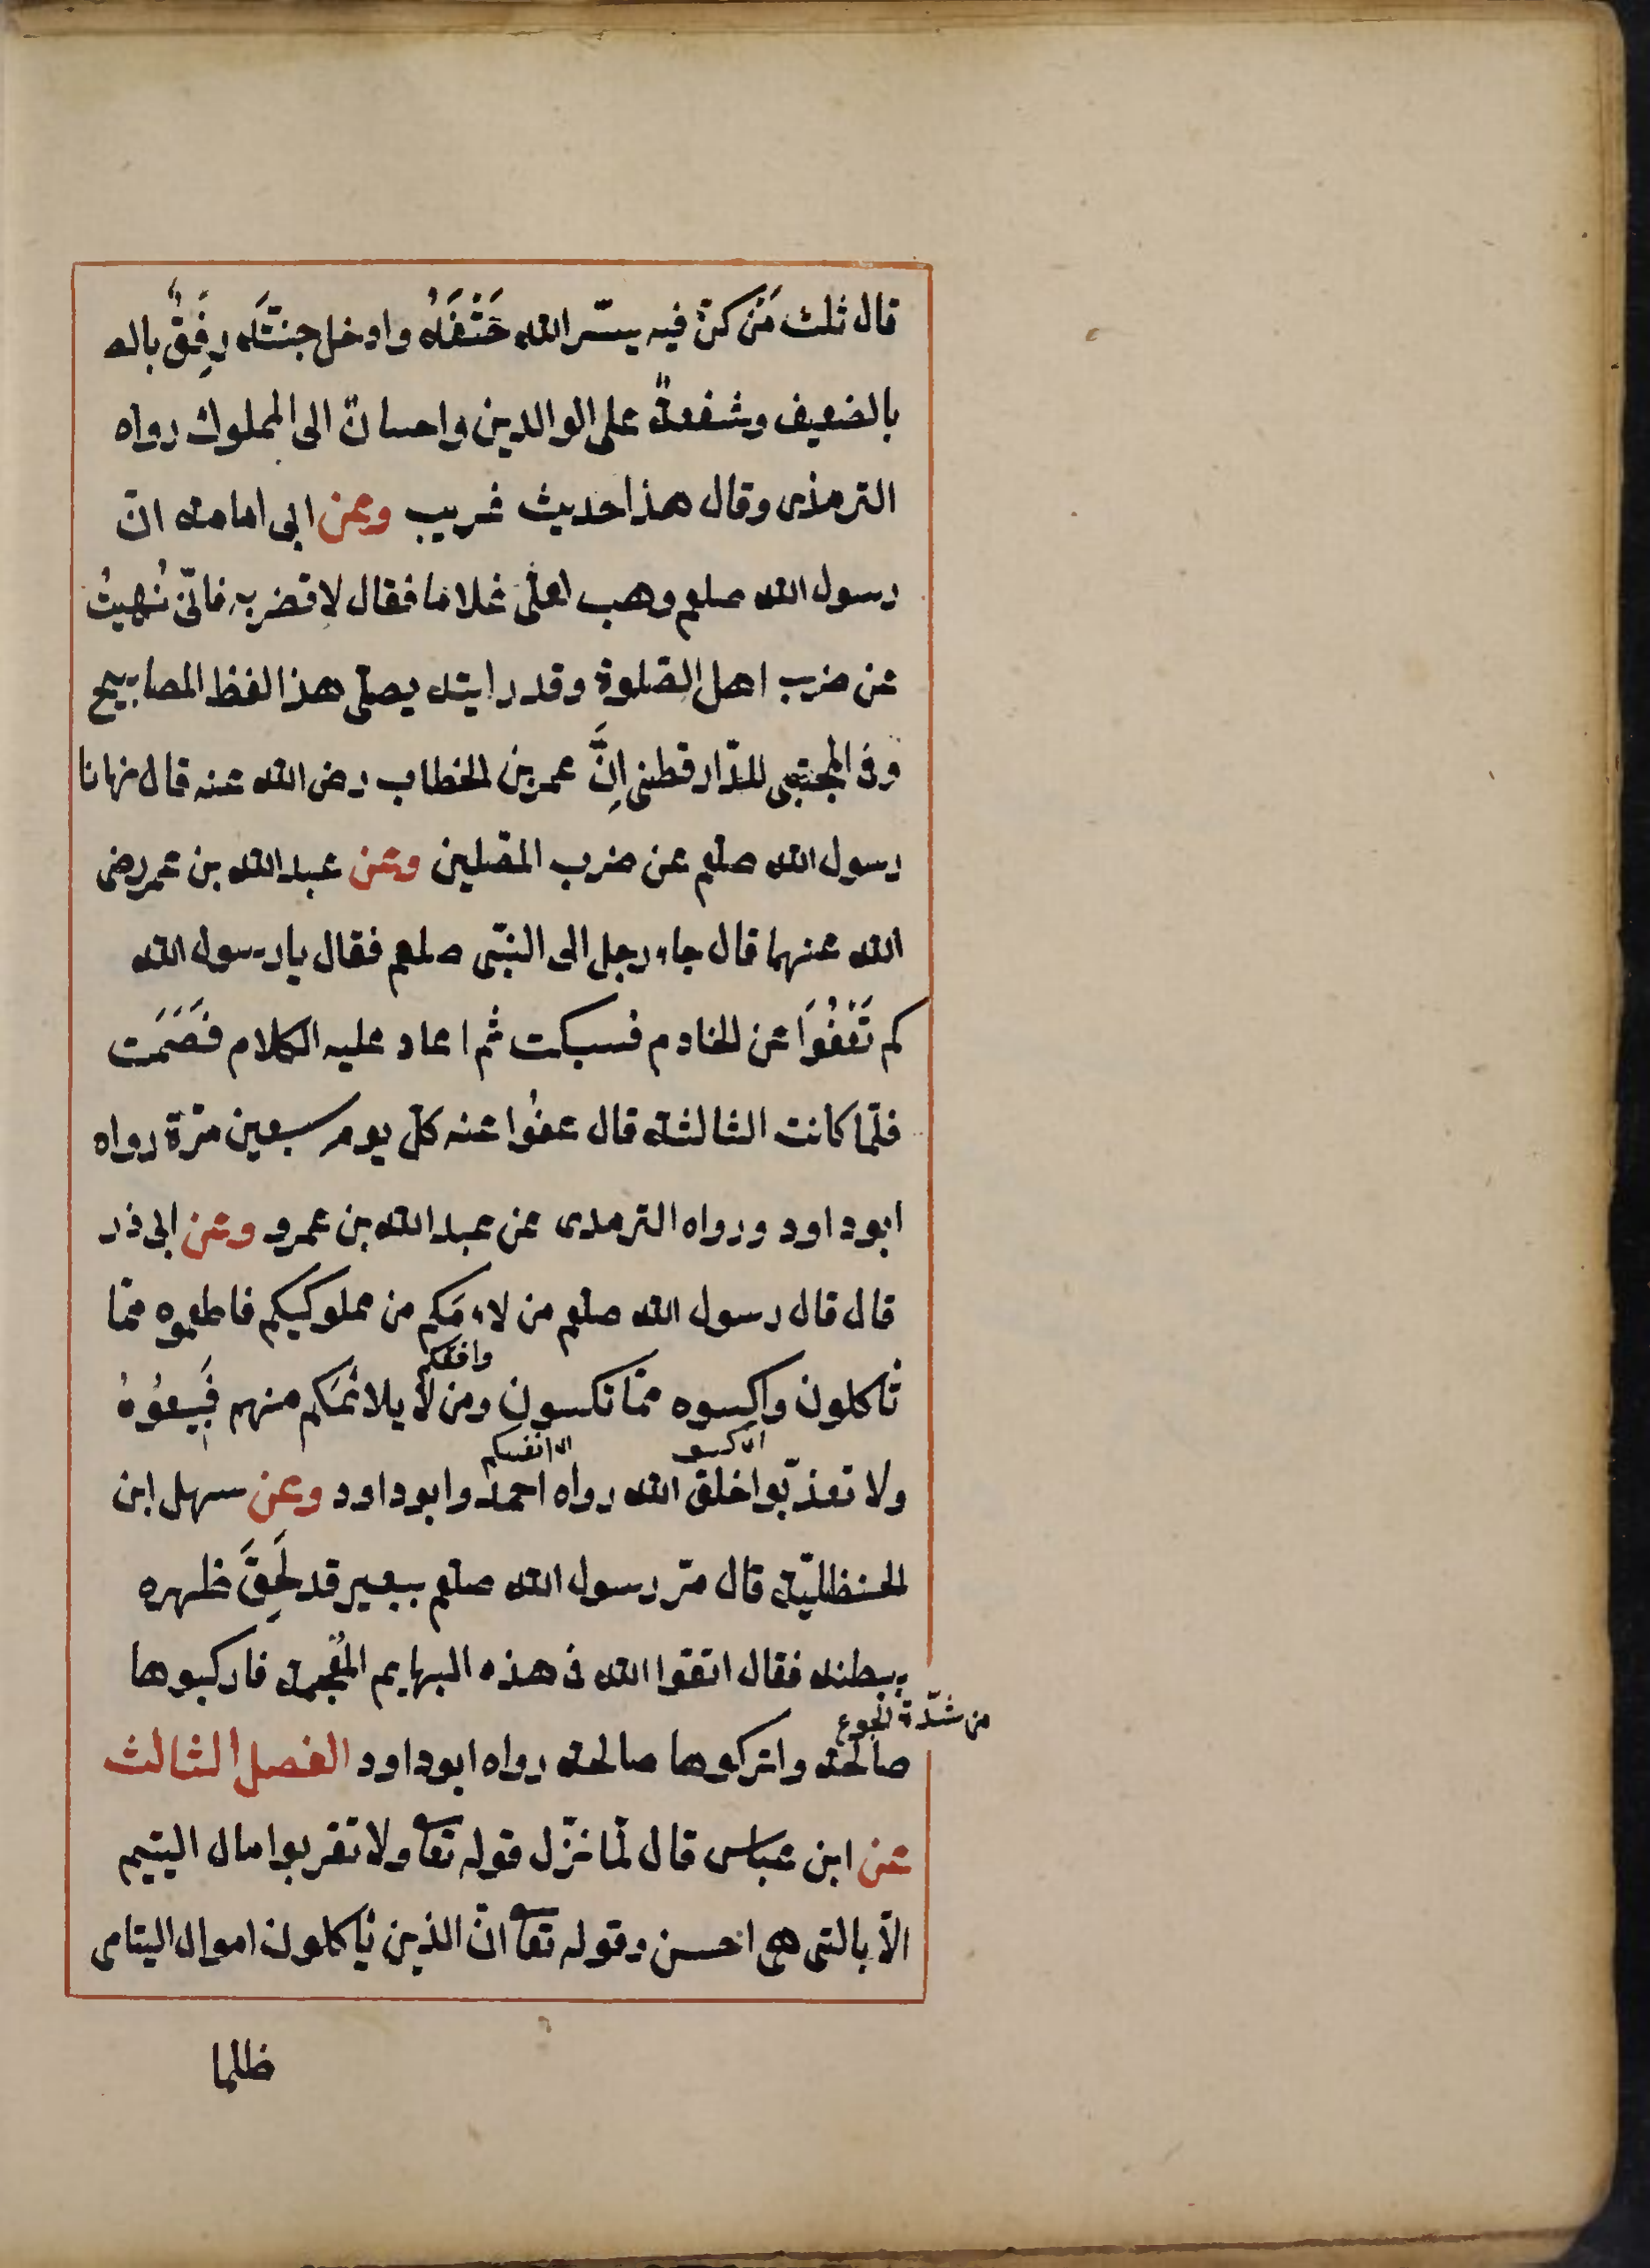 قال ثلث مَنْ كنّ فيه يسّر الله حَتْفَهُ وادخل جنّتَه رِفِقٌ بالص
بالضعيف وشفعةٌ على الوالدين واحسان الى المملوك رواه
الترمذى وقال هذا حديث غريب وعن ابى امامة انّ
رسول الله صلعم وهب لعلىّ غلاما فقال لا تضربه فانّى نُهيتُ
عن ضرب اهل الصّلوة وقد رايته يصلّى هذا لفظ المصابيح
وفى المجتبى للدّارقطنى اِنَّ عمر بن الخطاب رضى الله عنه قال نهانا
رسول الله صلعم عن ضرب المصّلين وعن عبد الله بن عمر رضى
الله عنهما قال جاء رجل الى النبّى صلعم فقال يا رسول الله
كم تَعْفُوَا عن الخادم فسكت ثم اعاد عليه الكلام فَصَمَت
فلمّا كانت الثالثة قال عفُوا عنه كلّ يوم سبعين مرّة رواه
ابوداود ورواه الترمذى عن عبد الله بن عمرو وعن ابى ذر
قال قال رسول الله صلعم من لاءمَكم من مملوكيكم فاطعموه ممّا
وافقكم
تأكلون واكسوه ممّا تكسون ومن لا يلائمَكم منهم فَبِيعُوهُ
انفسكم
ولا تعذّبوا خلق الله رواه احمد وابوداود وعن سهل ابن
الحنظليّة قال مرّ رسول الله صلعم ببعير قد لَحِقَ ظهره
ببطنه فقال اتقوا الله فى هذه البهايم المُعْجمة فاركبوها
من شدّة الجوع
صالحة واتركوها صالحة رواه ابوداود الفصل الثالث
عن ابن عباس قال لمّا نزّل قوله تعا ولا تقربوا مال اليتيم
الّا بالتى هى احسن وقوله تعا انّ الذين يأكلون اموال اليتامى
ظلما